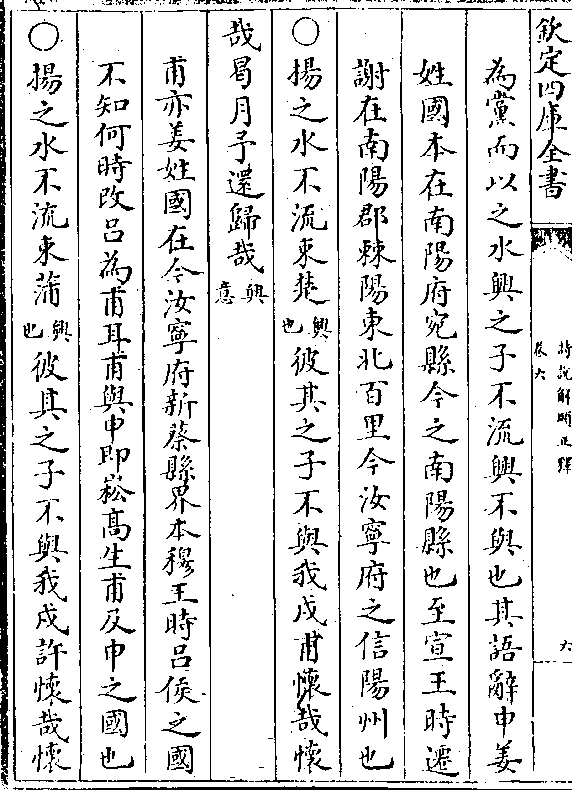 欽定四庫全書
詩說解頤正釋
卷六
六
為黨而以之水興之子不流興不與也其語辭申姜
姓國本在南陽府宛縣今之南陽縣也至宣王時遷
謝在南陽郡棘陽東北百里今汝寧府之信陽州也
○揚之水不流束楚興也彼其之子不與我戍甫懷哉懷
哉曷月予還歸哉興意
甫亦姜姓國在今汝寧府新蔡縣界本穆王時呂侯之國
不知何時改呂為甫耳甫與申即崧高生甫及申之國也
○揚之水不流束蒲興也彼其之子不與我戍許懷哉懷